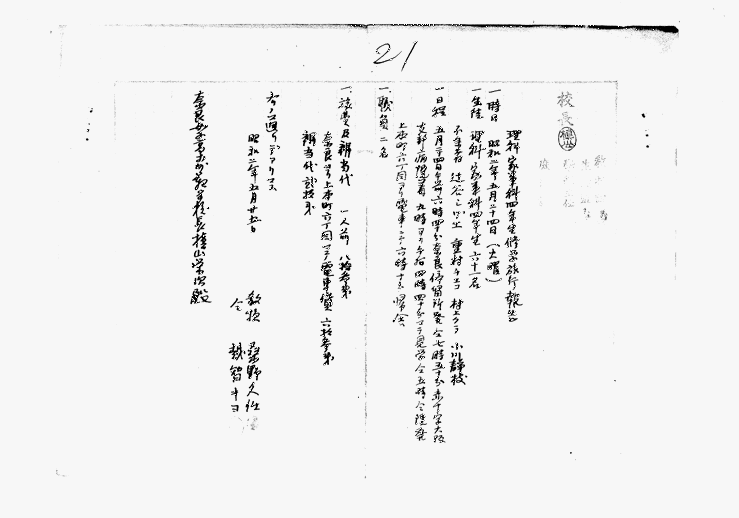 21
校長
理科家事科四年生修学旅行報告
一時日 昭和二年五月二十四日(火曜)
一生徒 理科家事科四年生六十一名
不参者 辻谷 重村チヱ 村上 小川静枝
一日程 五月二十四日午前六時四十分奈良停留所発 仝七時五十分赤十字大阪
支部病院着 九時ヨリ午後四時四十分マデ見学 仝五時 仝院発
上本町六丁目ヨリ電車ニテ六時十分帰舎
一職員 二名
一旅費及辨当代 一人前 八拾参銭
奈良ヨリ上本町六丁目マデ電車賃 六拾参銭
辨当代 弐拾銭
右ノ通リデアリマス
昭和二年五月廿五日
教授 桑野久任
仝 越智キヨ
奈良女子高等師範学校長槇山栄次殿